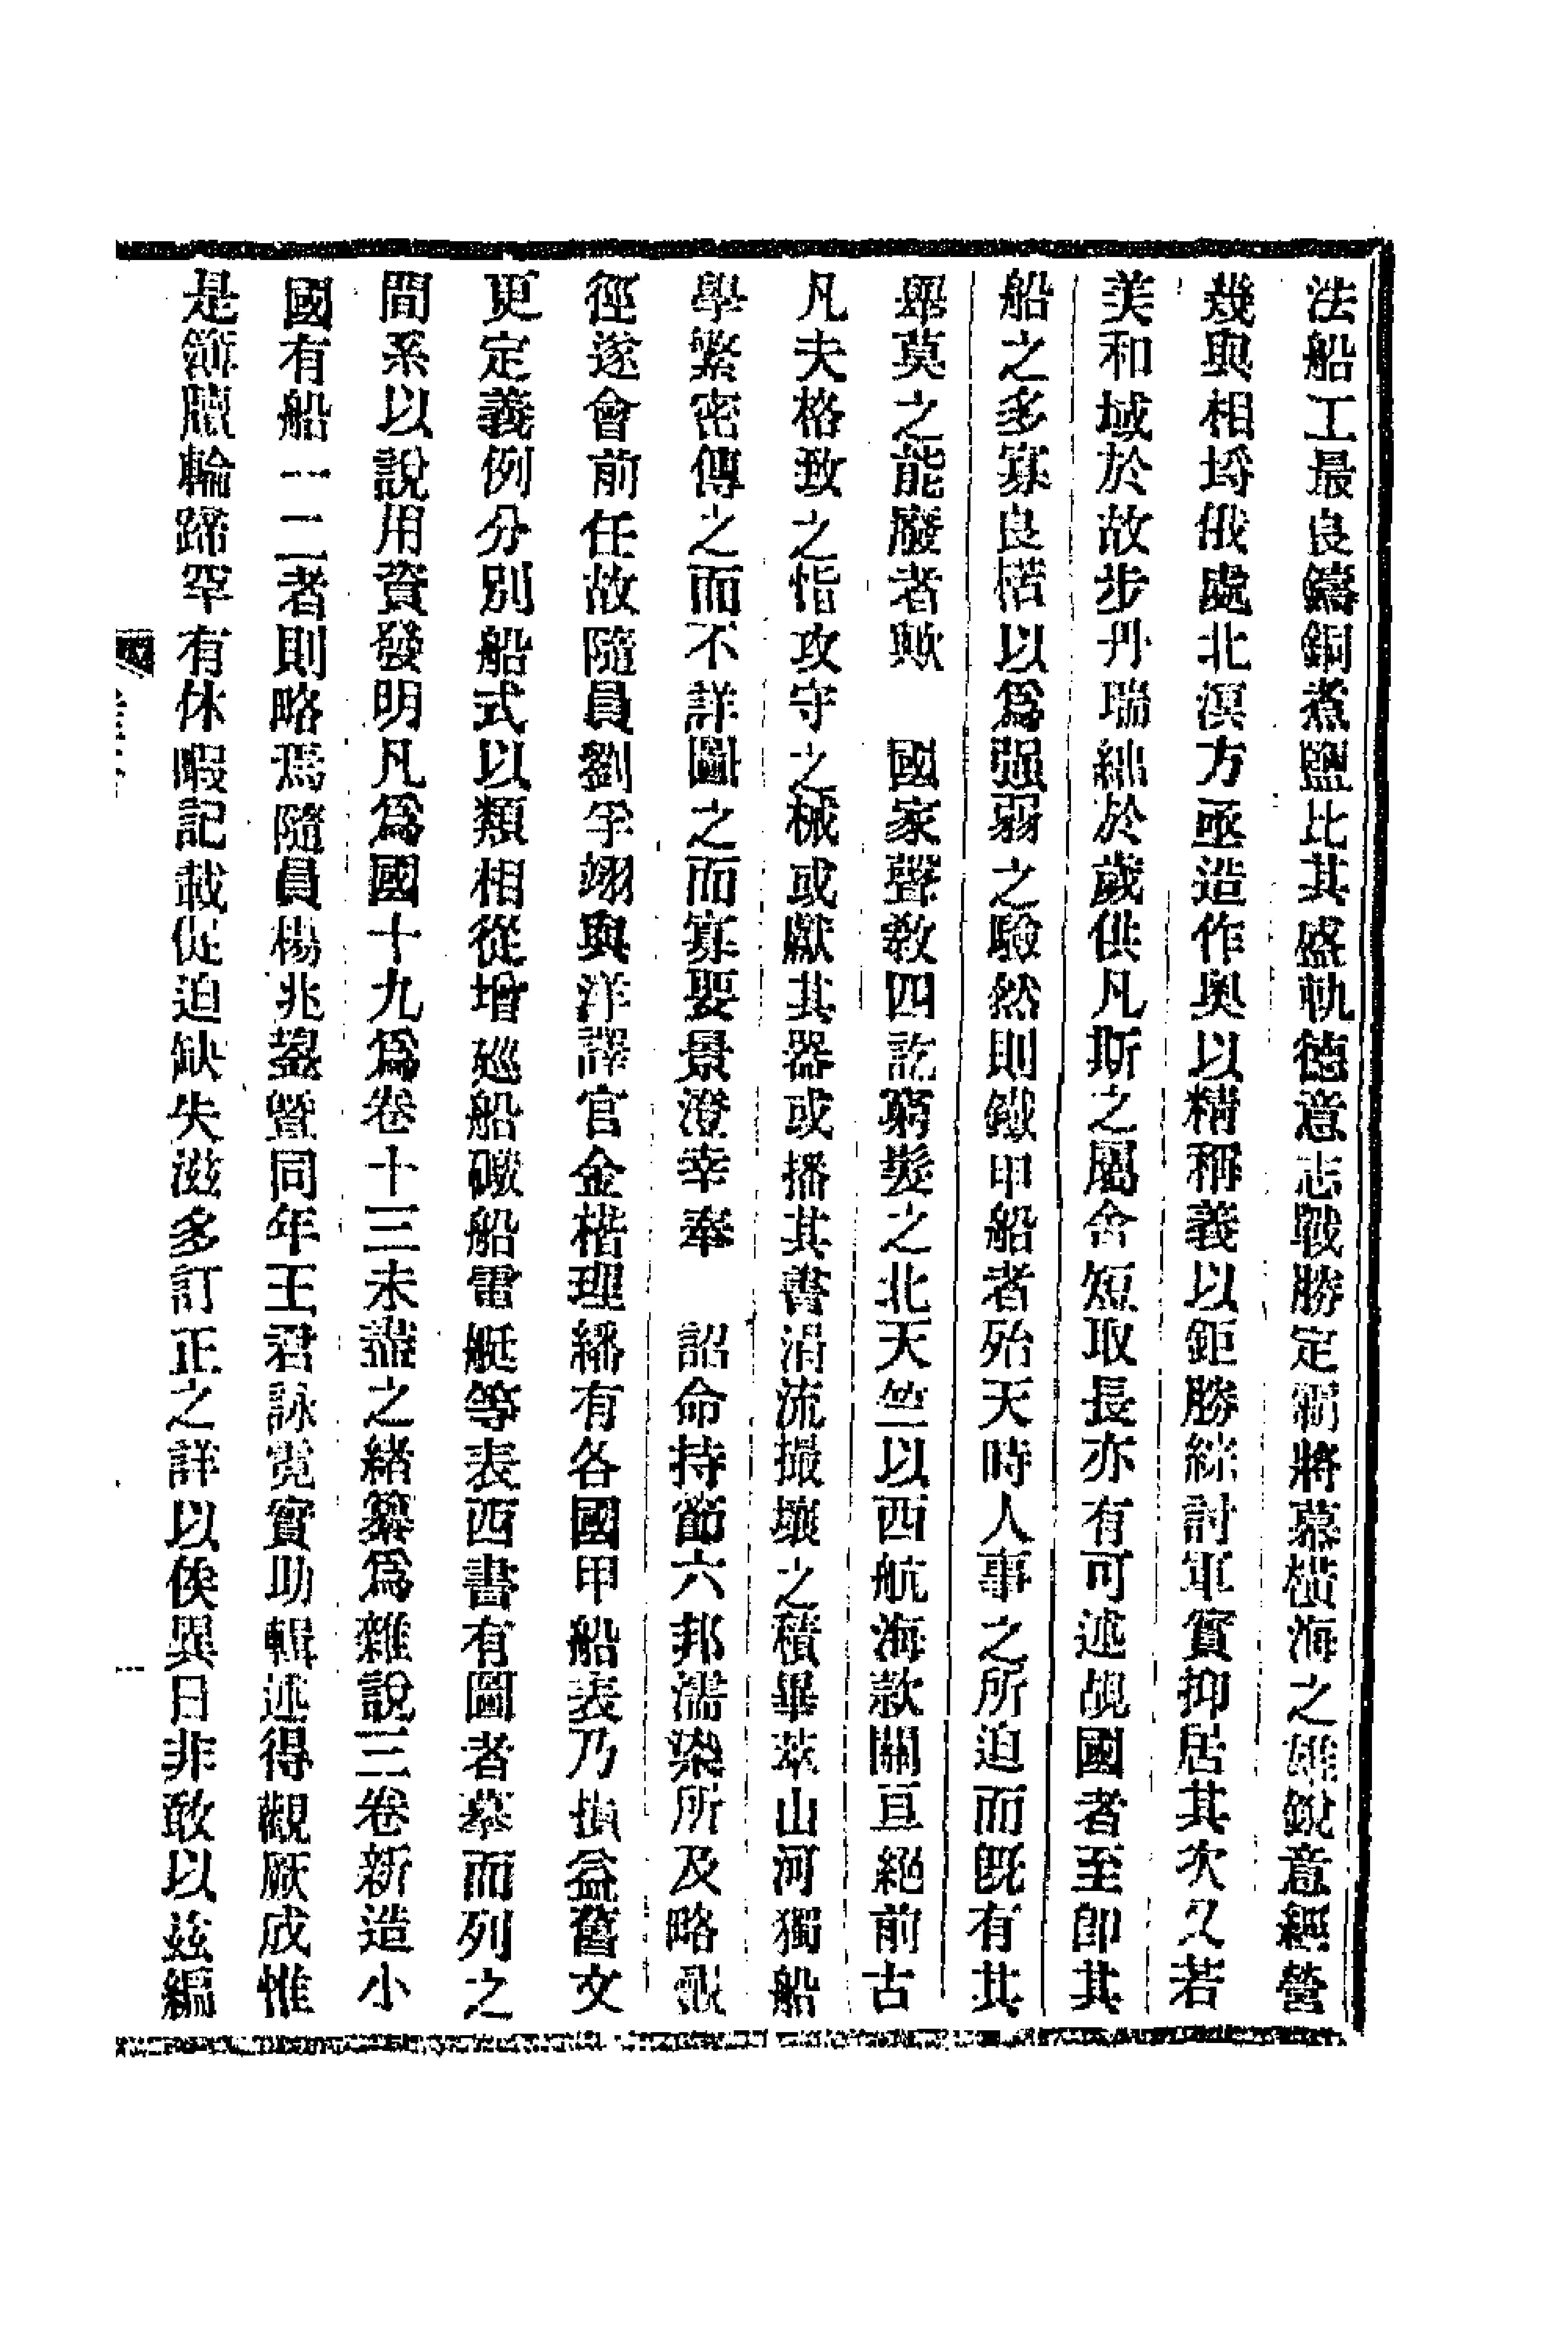 法船工最良鑄銅煮鹽比其盛軌德意志戰勝定霸將慕橫海之雄銳意經營
幾與相埒俄處北溟方亟造作奧以精稱義以鉅勝綜討軍實抑居其次又若
美和域於故步丹瑞絀於歲供凡斯之屬舍短取長亦有可述覘國者至卽其
船之多寡良楛以爲强弱之驗然則鐵甲船者殆天時人事之所迫而旣有其
舉莫之能廢者歟　國家聲敎四訖窮髮之北天竺以西航海款關亘絕前古
凡夫格致之恉攻守之械或獻其器或播其書涓流撮壤之積畢萃山河獨船
學繁密傳之而不詳圖之而寡要景澄幸奉　詔命持節六邦濡染所及略覩
徑遂會前任故隨員劉孚翊與洋譯官金楷理繙有各國甲船表乃損益舊文
更定義例分別船式以類相從增廵船礮船雷艇等表西書有圖者摹而列之
間系以說用資發明凡爲國十九爲卷十三未盡之緒纂爲雜說三卷新造小
國有船一二者則略焉隨員楊兆鋆暨同年王君詠霓實助輯述得觀厥成惟
是節牘輪蹄罕有休暇記載促迫缺失滋多訂正之詳以俟異日非敢以玆編